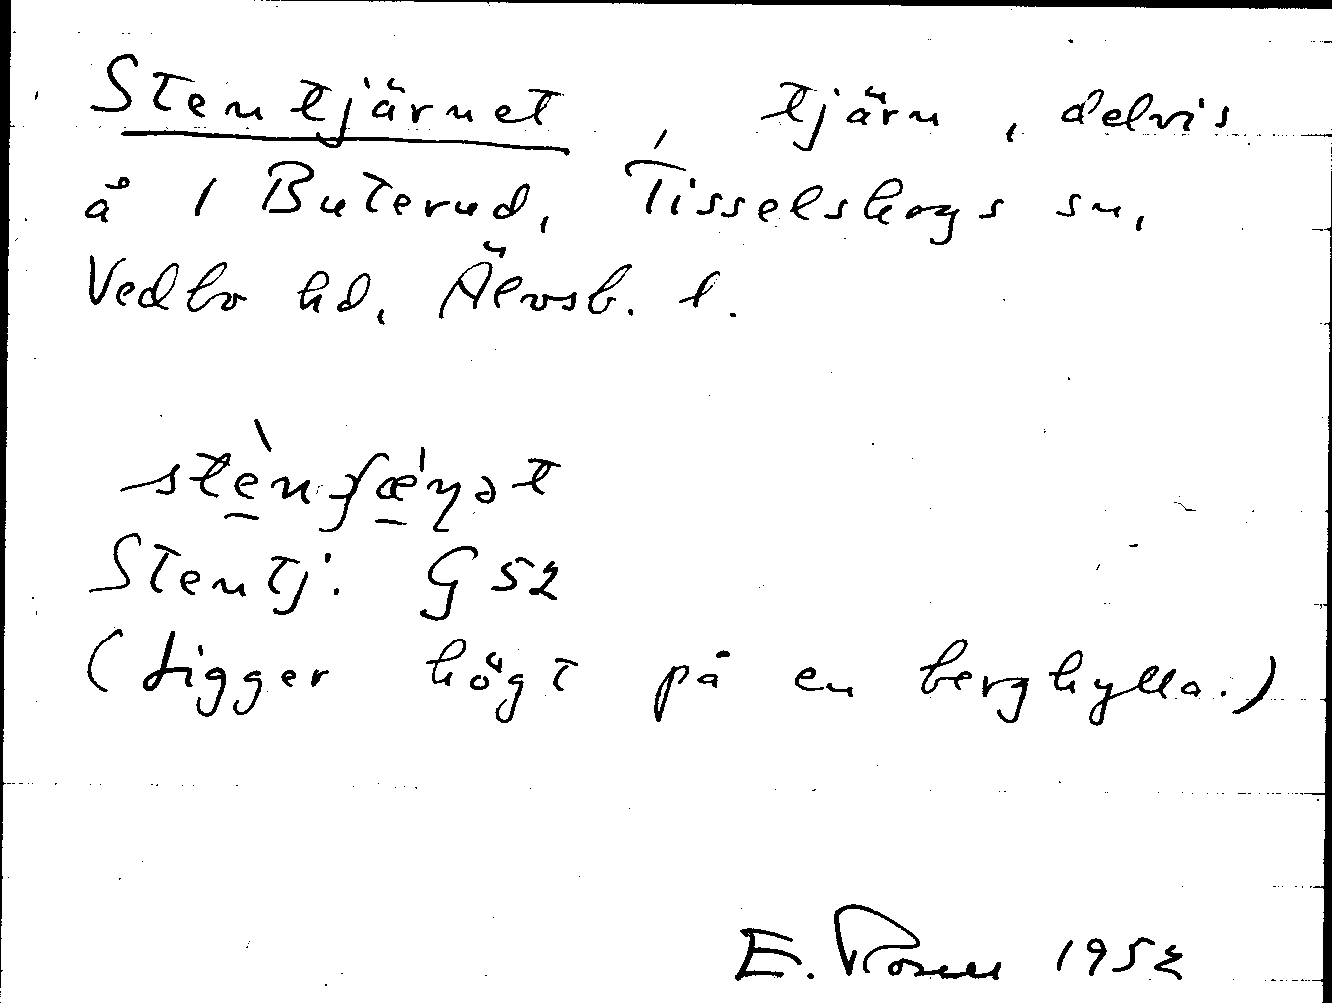 Stentjärnet, tjärn, delvis
å 1 Buterud, Tisselskogs sn,
Vedbo hd, Älvsb. l.
Stentj. G 52
(ligger högt på en berghylla.)
E. Rosell 1952